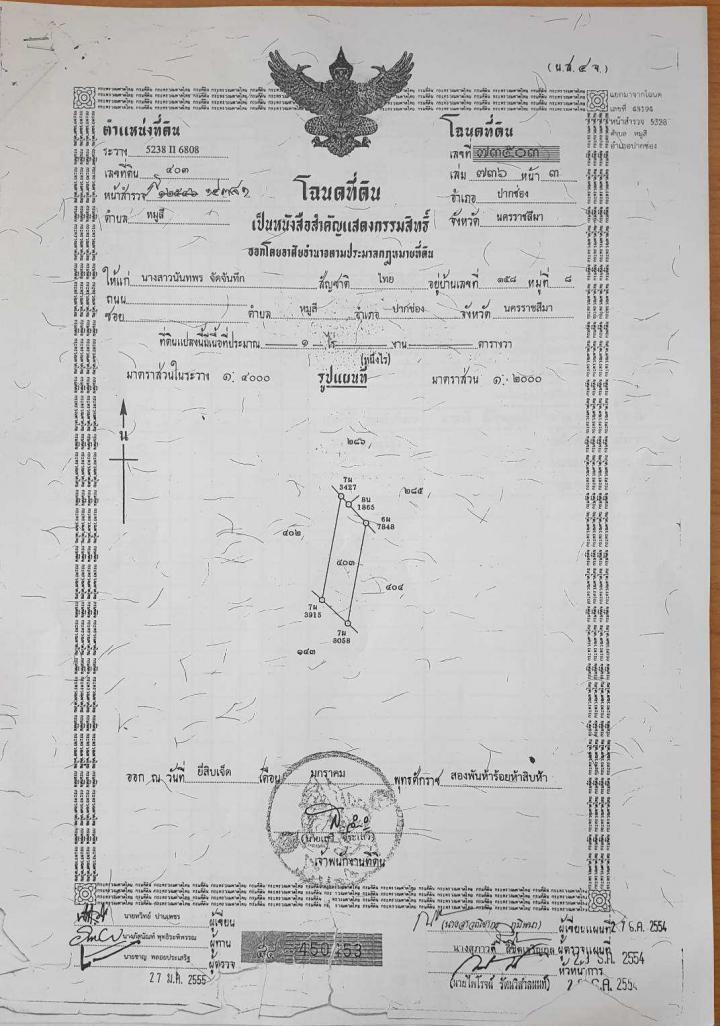 (น.ส. ๔ จ.)
แยกมาจากโฉนด
เลขที่ 43194
หน้าสำรวจ 5328
ตำบล หมูสี
อำเภอปากช่อง
ตำแหน่งที่ดิน
ระวาง 5238 II 6808
เลขที่ดิน ๔๐๓
หน้าสำรวจ
ตำบล หมูสี
โฉนดที่ดิน
เลขที่ ๗๓๕๐๓
เล่ม ๗๓๖ หน้า ๓
อำเภอ ปากช่อง
จังหวัด นครราชสีมา
โฉนดที่ดิน
เป็นหนังสือสำคัญแสดงกรรมสิทธิ์
ออกโดยอาศัยอำนาจตามประมวลกฎหมายที่ดิน
ให้แก่ นางสาวนันทพร จัดจันทึก สัญชาติ ไทย อยู่บ้านเลขที่ ๑๕๘ หมู่ที่ ๘
ถนน
ซอย ตำบล หมูสี อำเภอ ปากช่อง จังหวัด นครราชสีมา
ที่ดินแปลงนี้มีเนื้อที่ประมาณ ๑ ไร่ งาน ตารางวา
(หนึ่งไร่)
มาตราส่วนในระวาง ๑: ๔๐๐๐ รูปแผนที่ มาตราส่วน ๑: ๒๐๐๐
น
๒๘๖
7น
3427
๒๘๕
8น
1865
6น
7848
๔๐๒
๔๐๓
๔๐๔
7น
3915
7น
3058
๑๔๓
ออก ณ วันที่ ยี่สิบเจ็ด เดือน มกราคม พุทธศักราช สองพันห้าร้อยห้าสิบห้า
เจ้าพนักงานที่ดิน
ผู้เขียน
ผู้ทาน
ผู้ตรวจ
27 ม.ค. 2555
450153
ผู้เขียนแผนที่ 27 ธ.ค. 2554
ผู้ตรวจแผนที่ 2554
หัวหน้าการ